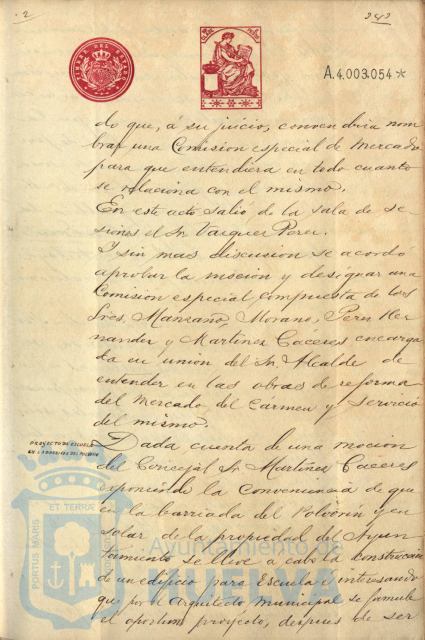 2
TIMBRE DEL ESTADO
A.4.003.054*
do que, á su juicio, convendria nom
brar una Comision especial de Mercado
para que entendiera en todo cuanto
se relaciona con el mismo.
En este acto salió de la sala de se
siones el Sr. Vazquez Perez.
Y sin mas discusion se acordó
aprobar la mocion y designar una
Comision especial compuesta de los
Sres. Manzano, Morano, Perez Her
nandez y Martinez Cáceres encarga
da en union del Sr. Alcalde de
entender en las obras de reforma
del Mercado del Cármen y servicio
del mismo.
PROYECTO DE ESCUELA
EN LA BARRIADA DEL POLVORIN
Dada cuenta de una mocion
del Concejal Sr. Martinez Caceres
exponiendo la conveniencia de que
en la barriada del Polvorin y en
solar de la propiedad del Ayun
tamiento se lleve a cabo la construccion
de un edificio para Escuela é interesando
que por el Arquitecto municipal se formule
el oportuno proyecto, despues de ser
PORTUS MARIS ET TERRAE
Ayuntamiento de
HUELVA